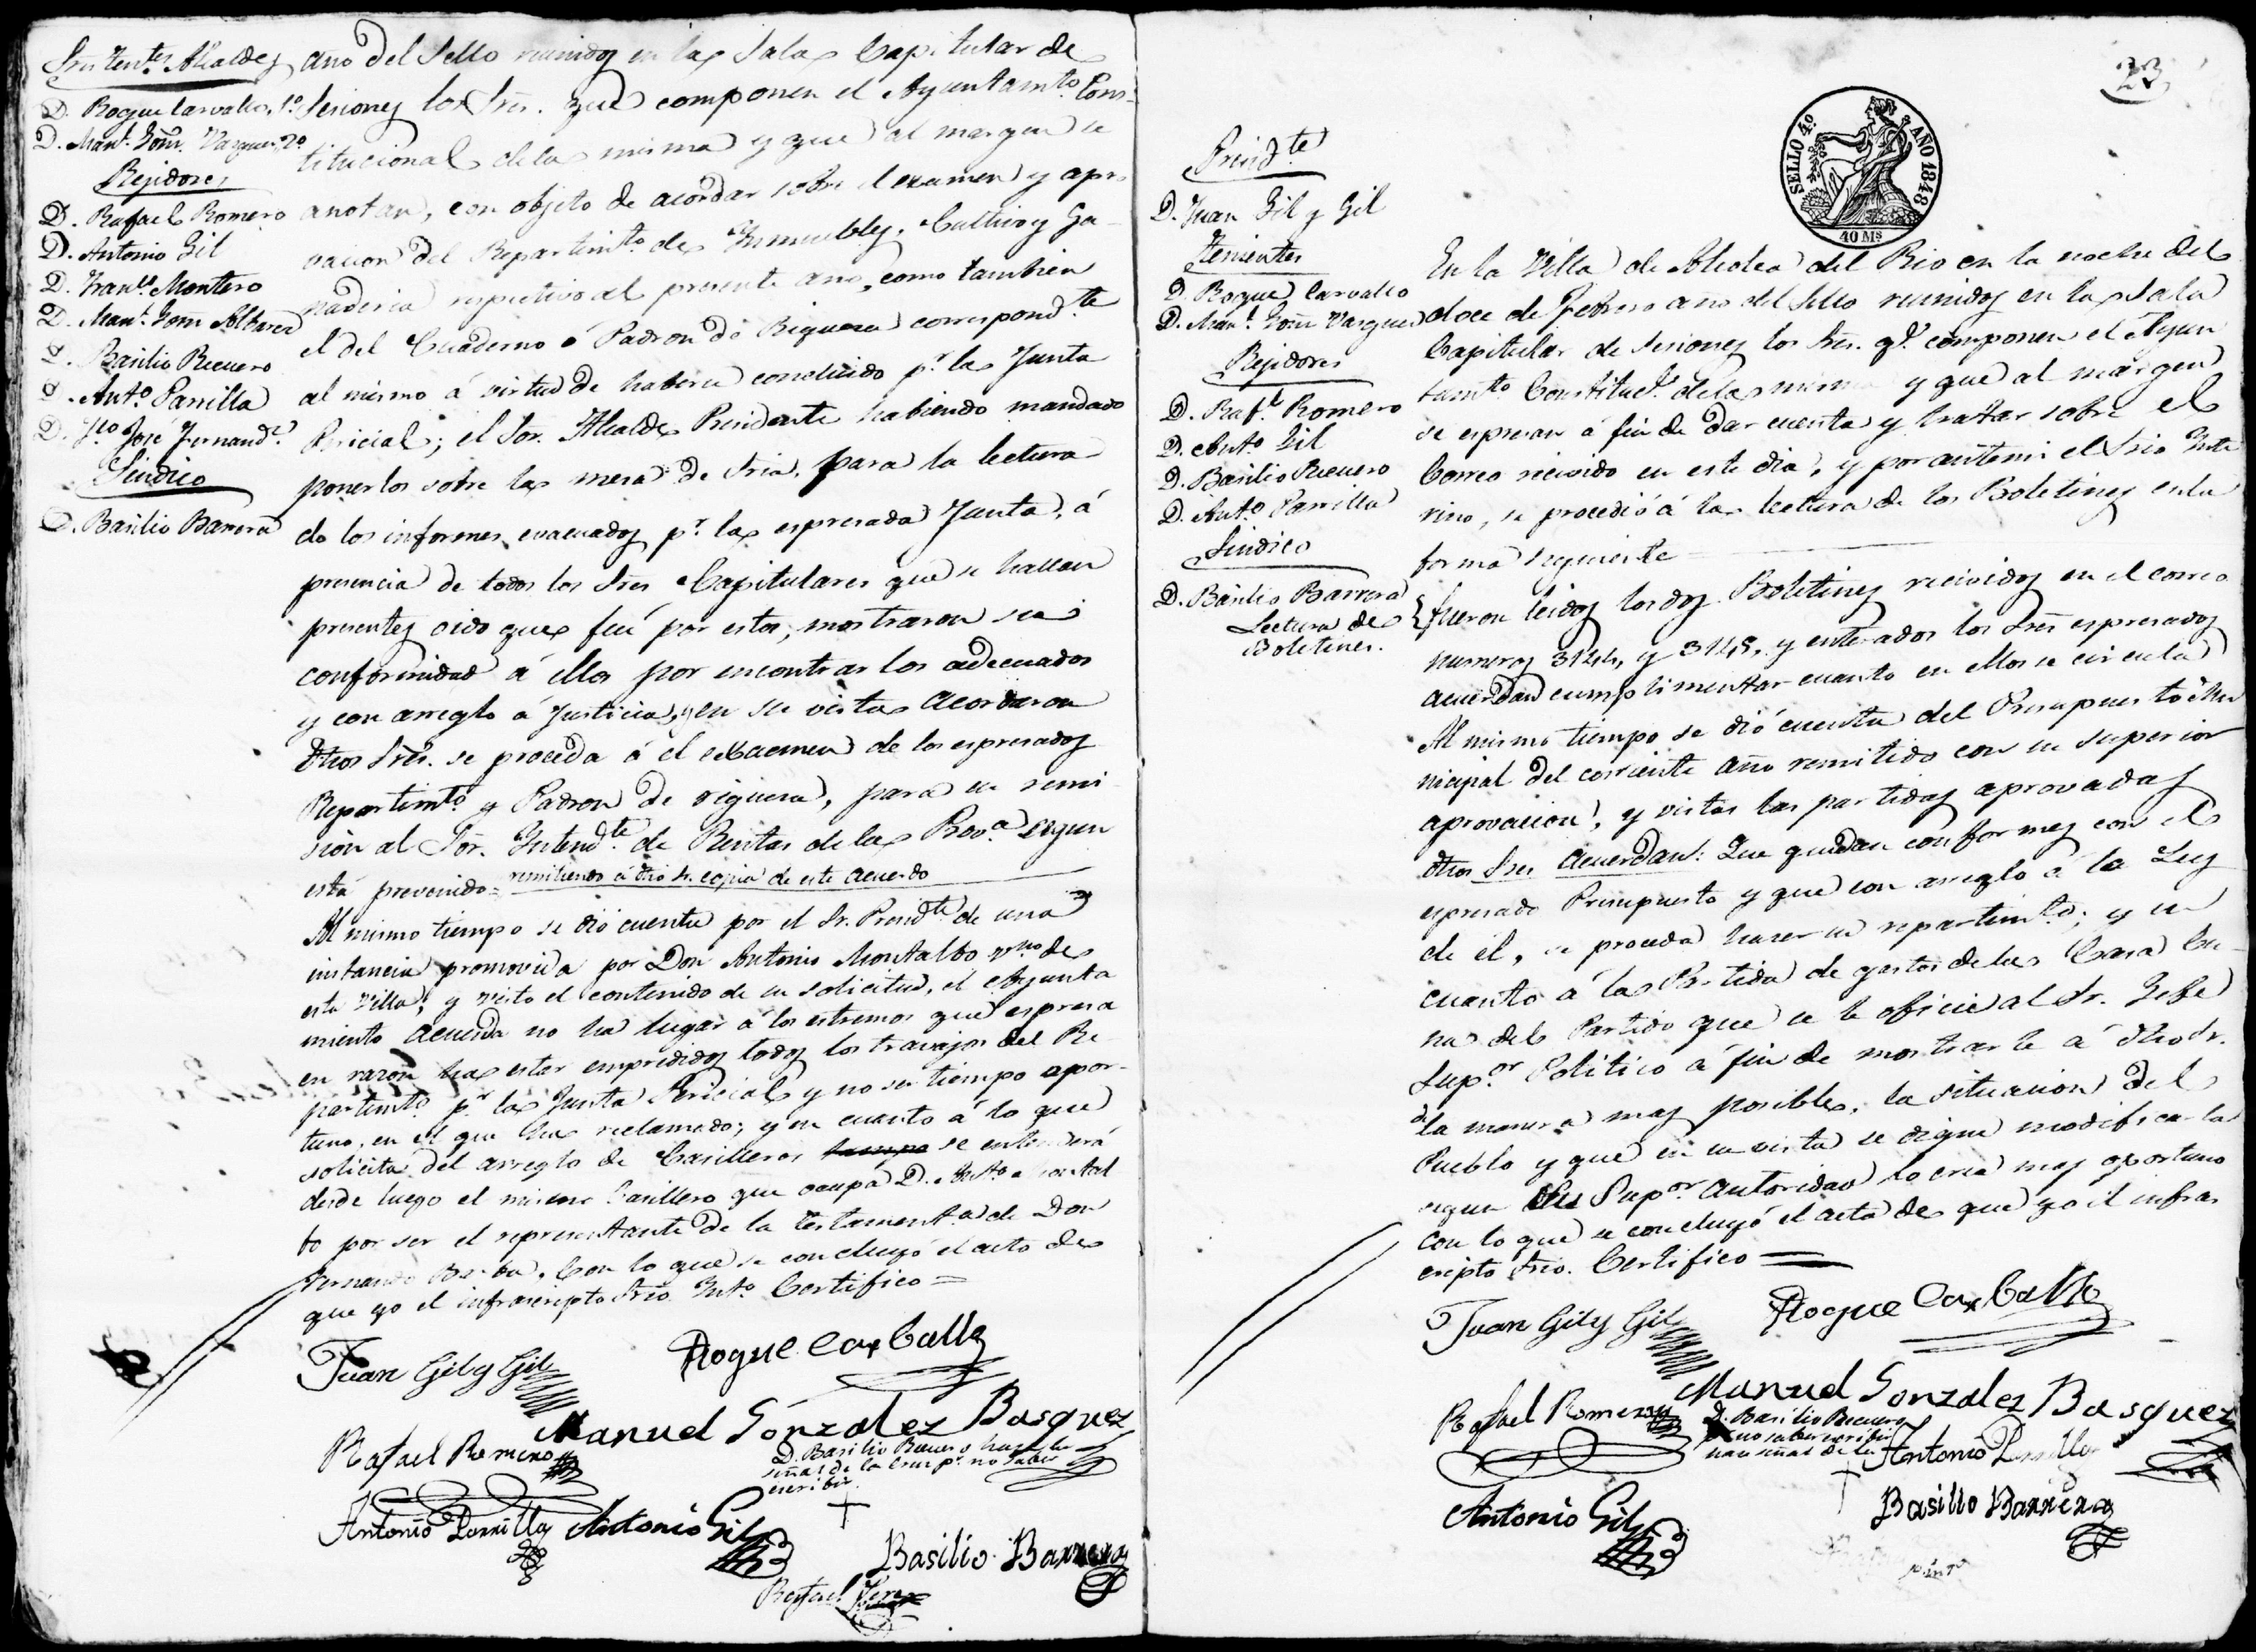 Sres Tentes Alcaldes
D. Roque Carvallo, 1º
D. Manl. Gonz. Vazquez 2º
Rejidores
D. Rafael Romero
D. Antonio Gil
D. Franco. Montero
D. Manl. Gonz
D. Basilio Recuero
D. Anto. Parrilla
D. José Fernandz.
Sindico
D. Basilio Barrera
año del Sello reunidos en la Sala Capitular de
Sesiones los Sres. que componen el Ayuntamto. Cons-
titucional de la misma y que al margen se
anotan, con objeto de acordar sobre el examen y apro
vacion del Repartimto. de Inmuebles, Cultivo y Ga-
naderia respectivo al presente año, como tambien
el del Cuaderno ó Padron de Riqueza correspondte.
al mismo á virtud de haberse concluido pr. la Junta
Pericial; el Sor. Alcalde Presidente habiendo mandado
ponerlos sobre la mesa de Sria. para la lectura
de los informes evacuados pr. la espresada Junta, á
presencia de todos los Sres Capitulares que se hallan
presentes oido que fué por estos, mostraron su
conformidad á ellos por encontrarlos adecuados
y con arreglo á Justicia, y en su vista acordaron
dhos Sres. se proceda á el exsamen de los espresados
Repartimto. y Padron de riqueza, para su remi
sion al Sor. Intendte. de Rentas de la Prova. segun
está prevenido = remitiendo á dho Sr. copia de este acuerdo
Al mismo tiempo se dió cuenta por el Sr. Presidte. de una
instancia promovida por Don Antonio Montalbo vno. de
esta Villa; y visto el contenido de su solicitud, el Ayunta
miento acuerda no ha lugar á los estremos que espresa
en razon ha estar empredidos todos los travajos del Re
partimto. pr. la Junta Pericial y no ser tiempo opor-
tuno, en el que ha reclamado; y en cuanto á lo que
solicita del arreglo de Casilleros se entenderá
desde luego el mismo Casillero que ocupa D. Anto. Montal
bo por ser el representante de la testamenta. de Don
Fernando Con lo que se concluyó el acto de
que yo el infrascripto Srio. Into. Certifico =
Juan Gil y Gil
Roque Carballo
Manuel Gónzalez Basquez
Rafael Romero
D. Basilio Recuero hace la
señal de la Cruz pr. no saber
escribir.
Antonio Parrilla
Antonio Gil
Basilio Barrera
Rafael
23
SELLO 4º.
AÑO 1848
40 Ms
Presidte.
D. Juan Gil y Gil
Tenientes
D. Roque Carvallo
D. Manl. Gonz Vazquez
Rejidores
D. Rafl. Romero
D. Anto. Gil
D. Basilio Recuero
D. Anto. Parrilla
Sindico
D. Basilio Barrera
Lectura de
Boletines.
En la Villa de Alcolea del Rio en la noche del
doce de Febrero año del Sello reunidos en la Sala
Capitular de Sesiones los Sres. qe. componen el Ayun
tamto. Constitucl. de la misma y que al margen
se espresan á fin de dar cuenta y tratar sobre el
Correo recivido en este dia, y por ante mi el Srio Inte
rino, se procedió á la lectura de los Boletines en la
forma siguiente
Fueron leidos los dos Boletines recividos en el correo
numeros 3144, y 3145, y enterados los Sres espresados
acuerdan cumplimentar cuanto en ellos se circula
Al mismo tiempo se dió cuenta del Presupuesto Mu
nicipal del corriente año remitido con su superior
aprovacion, y vistas las partidas aprovadas
dhos Sres acuerdan: Que quedan conformes con el
espresado Presupuesto y que con arreglo á la Ley
de él, se proceda hacer su repartimto.; y en
cuanto á la Partida de gastos de la Casa Cu-
na del Partido que se le oficie al Sr. Gefe
Supor. Politico á fin de mostrarle á dho Sr.
de la manera mas posible, la situacion del
Pueblo y que en su vista se digne modificarla
segun su Supor. autoridad lo crea mas oportuno
con lo que se concluyó el acta de que yo el infras
cripto Srio. Certifico =
Juan Gil y Gil
Roque Carballo
Manuel Gonzalez Basquez
Rafael Romero
D. Basilio Recuero
pr. no saber escribir
hace señal de la
Antonio Parrilla
Antonio Gil
Basilio Barrera